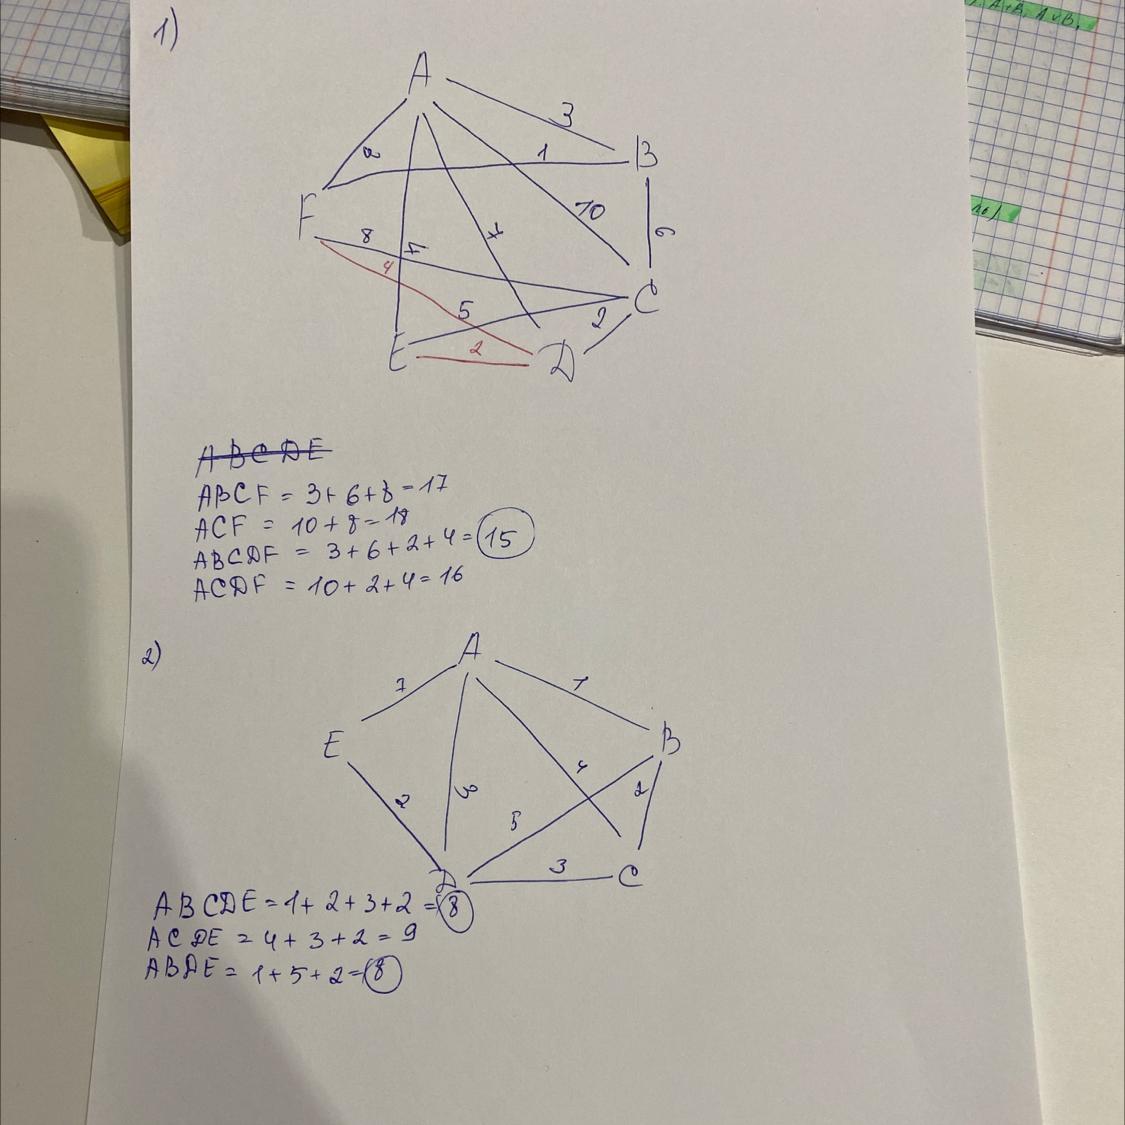 A+B, A∨B,
1)
A
3
B
2
1
F
10
6
8
4
5
2
C
E
2
D
ABCDE
ABCF = 3+6+8=17
ACF = 10+8=18
ABCDF = 3+6+2+4=15
ACDF = 10+2+4=16
2)
A
7
1
E
B
4
2
2
5
3
D
C
ABCDE=1+2+3+2=8
ACDE = 4+3+2=9
ABDE = 1+5+2=8